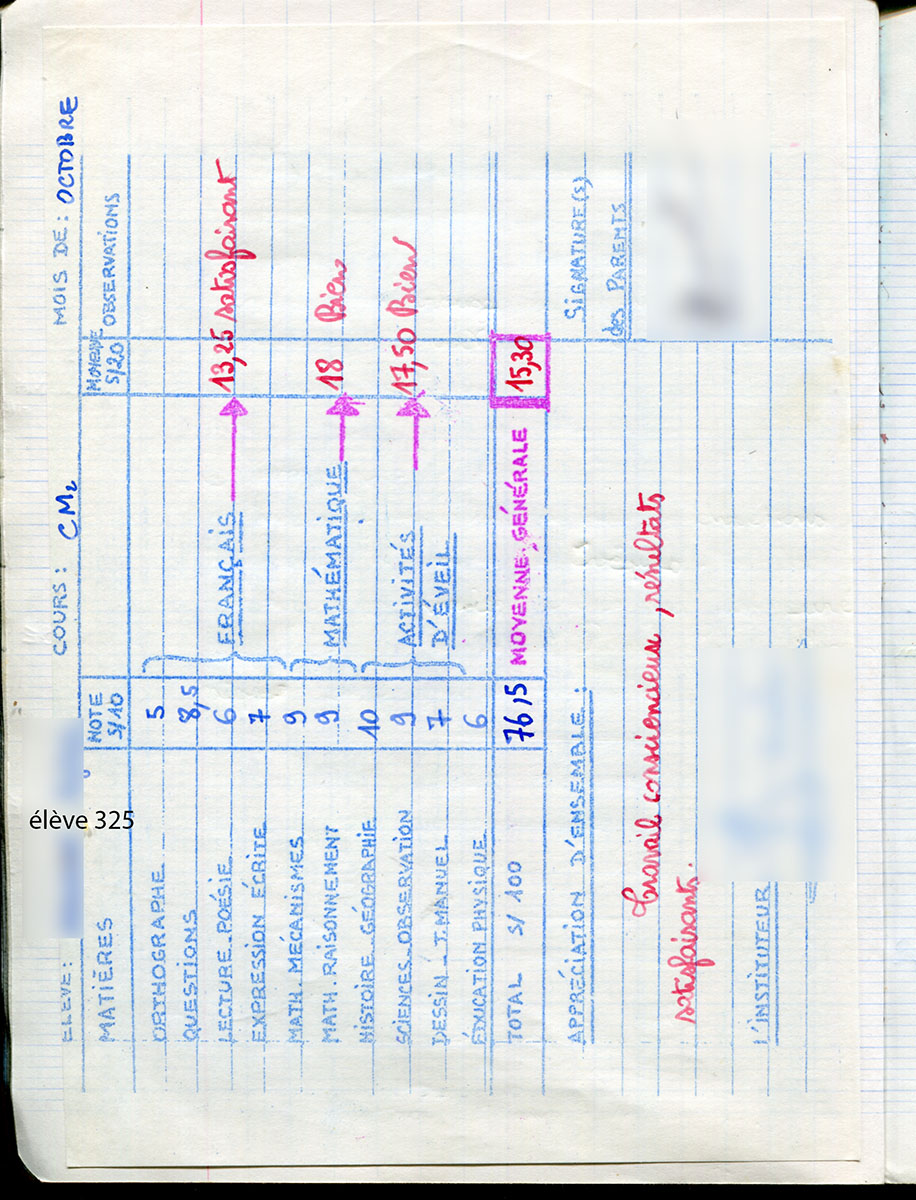 élève 325
ÉLÈVE: COURS: CM2 MOIS DE: OCTOBRE
MATIÈRES NOTE S/10 MOYENNE S/20 OBSERVATIONS
ORTHOGRAPHE 5
QUESTIONS 8,5
LECTURE.POÉSIE 6 FRANÇAIS 13,25 satisfaisant
EXPRESSION ÉCRITE 7
MATH. MÉCANISMES 9
MATH. RAISONNEMENT 9 MATHÉMATIQUE 18 Bien
HISTOIRE.GÉOGRAPHIE 10
SCIENCES.OBSERVATION 9 ACTIVITÉS 17,50 Bien
DESSIN - T.MANUEL 7 D'ÉVEIL
ÉDUCATION PHYSIQUE 6
TOTAL S/ 100 76,5 MOYENNE.GÉNÉRALE 15,30
APPRÉCIATION D'ENSEMBLE: SIGNATURE(s)
des PARENTS
Travail consciencieux, résultats
satisfaisants.
L'INSTITUTEUR